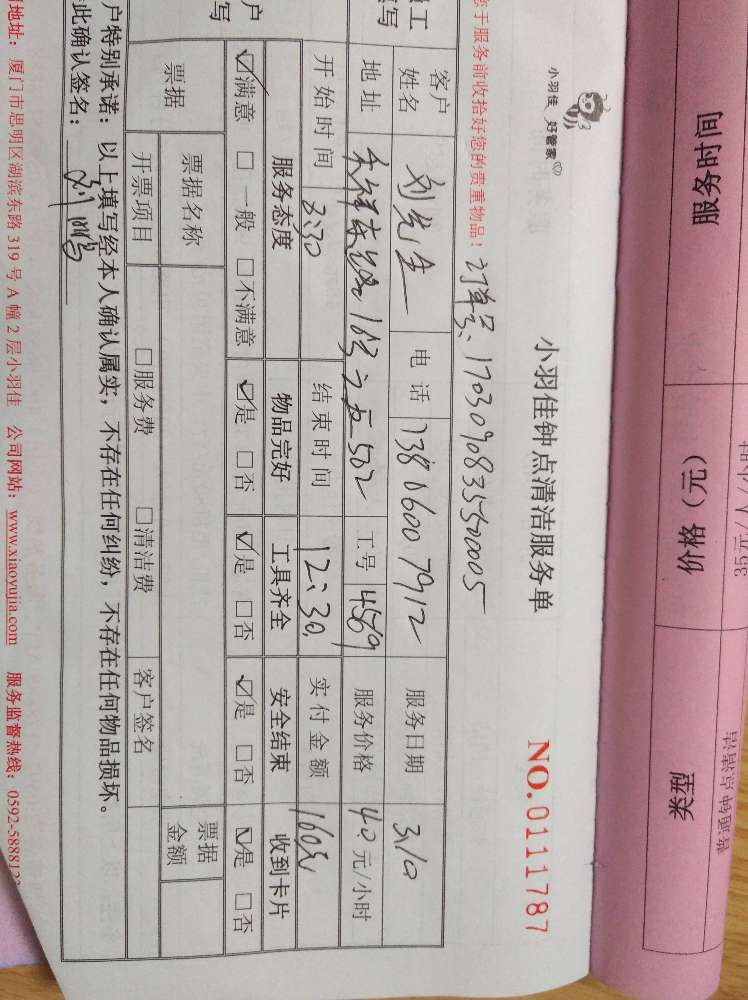 小羽佳 好管家
小羽佳钟点清洁服务单
NO.0111787
您于服务前收拾好您的贵重物品！订单号：17030908355500005
员工 填写
客户姓名 刘先生 电话 13806007912 服务日期 3.10
地址 禾祥东路16号之五502 工号 4569 服务价格 40元/小时
开始时间 8:30 结束时间 12:30. 实付金额 160元
客户 填写
服务态度 物品完好 工具齐全 安全结束 收到卡片
☑满意 □一般 □不满意 ☑是 □否 ☑是 □否 ☑是 □否 ☑是 □否
票据 票据名称 票据金额
开票项目 □服务费 □清洁费 客户签名
户特别承诺：以上填写经本人确认属实，不存在任何纠纷，不存在任何物品损坏。
此确认签名：刘鹏
地址：厦门市思明区湖滨东路319号A幢2层小羽佳 公司网站：www.xiaoyujia.com 服务监督热线：0592-588812
服务时间 价格（元） 类型